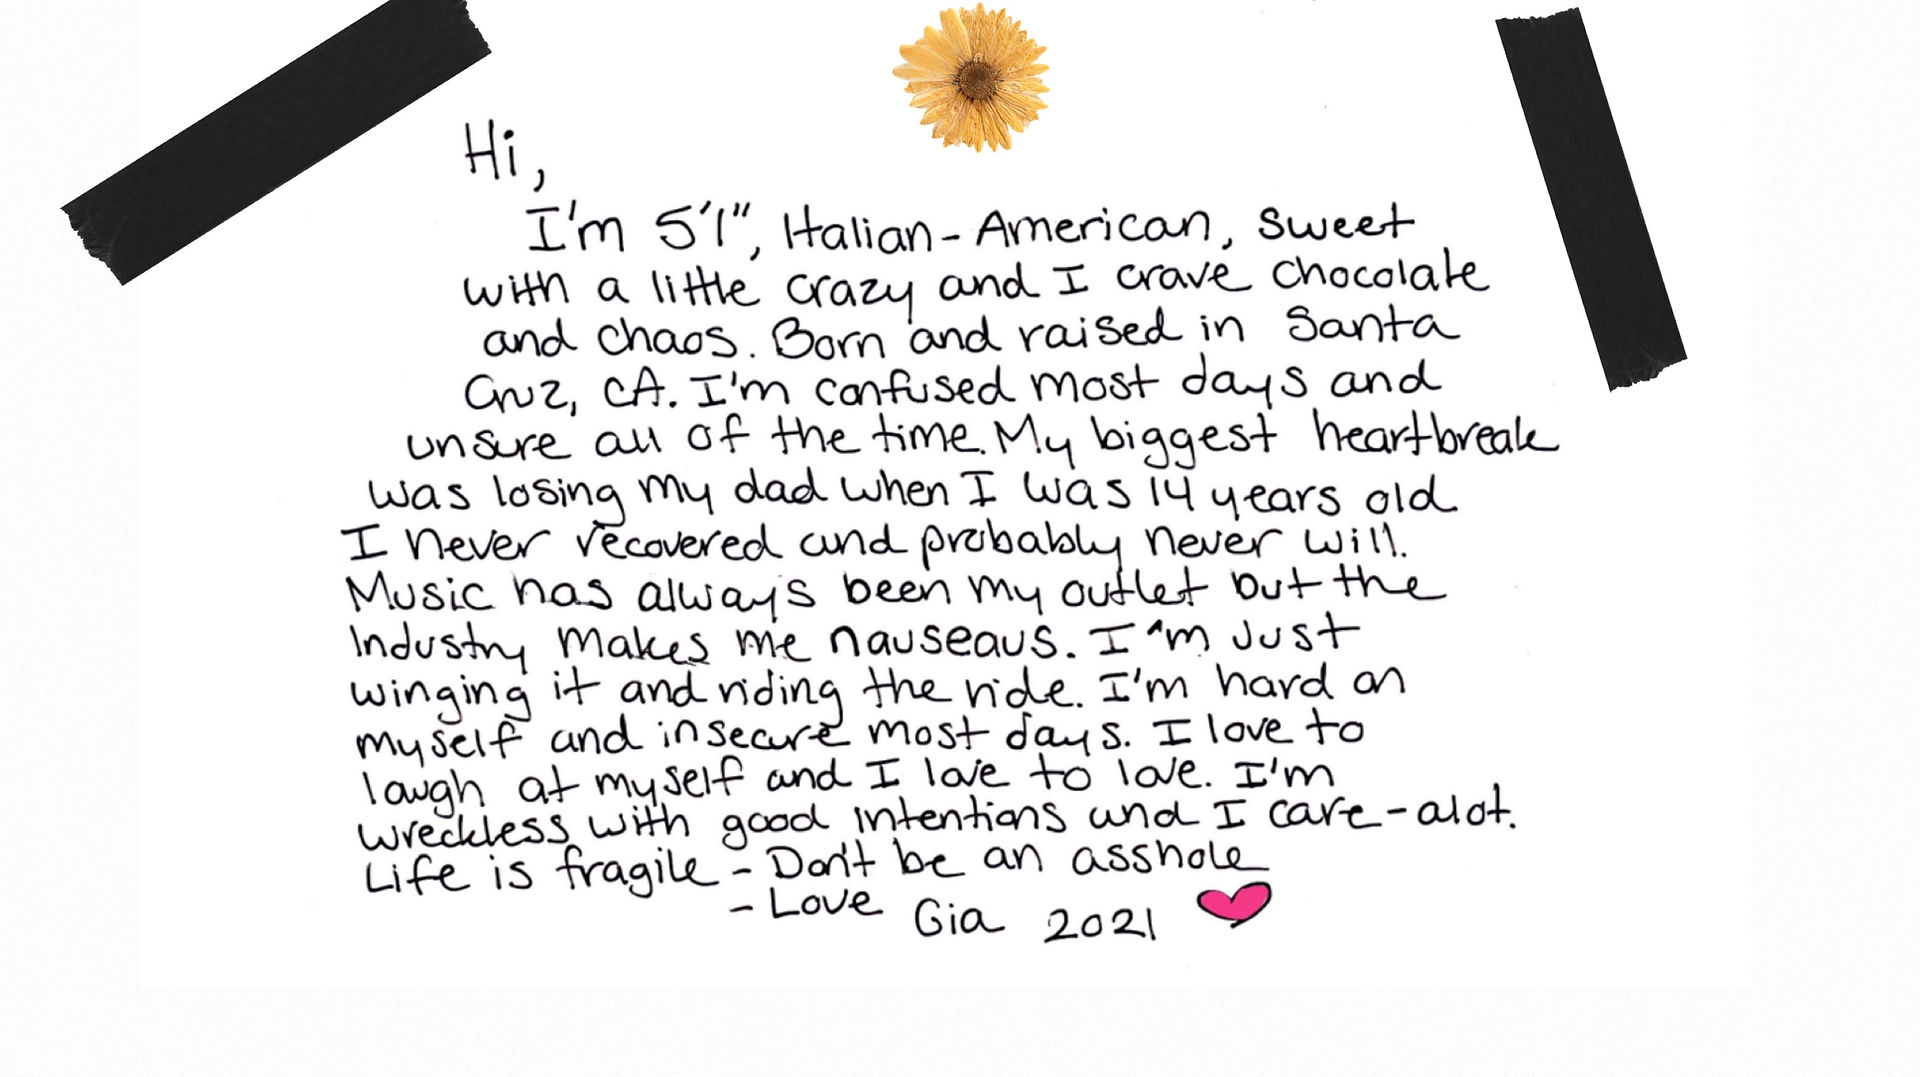 Hi,
I'm 5'1", Italian-American, sweet
with a little crazy and I crave chocolate
and chaos. Born and raised in Santa
Cruz, CA. I'm confused most days and
unsure all of the time. My biggest heartbreak
was losing my dad when I was 14 years old.
I never recovered and probably never will.
Music has always been my outlet but the
Industry makes me nauseaus. I'm Just
winging it and riding the ride. I'm hard on
myself and insecure most days. I love to
laugh at myself and I love to love. I'm
wreckless with good intentions and I care-alot.
Life is fragile - Don't be an asshole
- Love Gia 2021